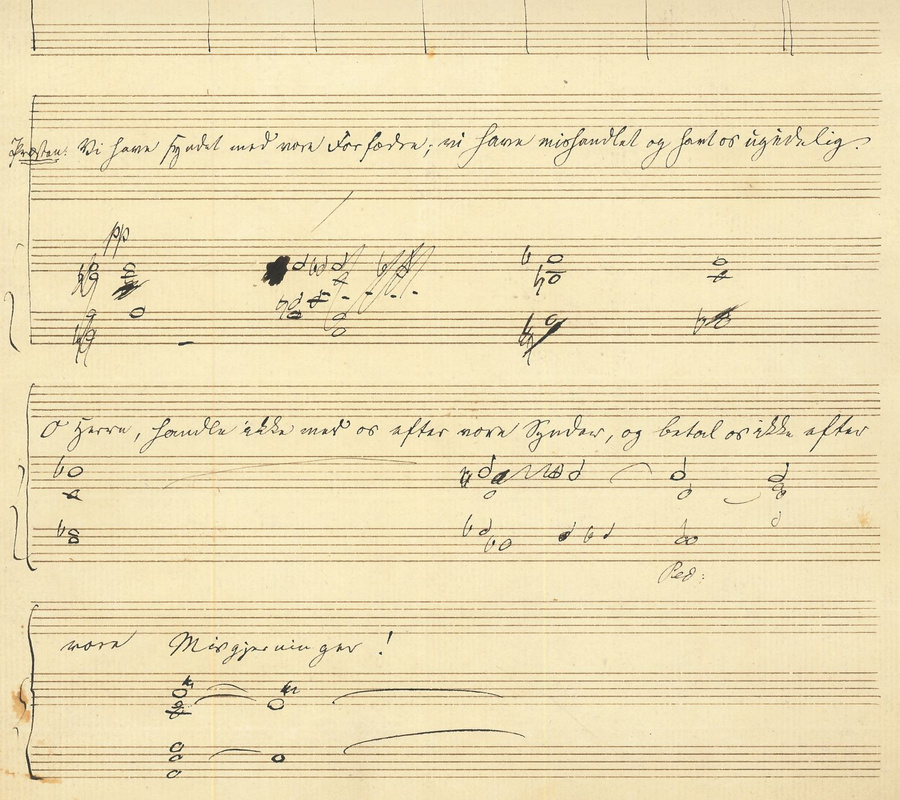 Præsten: Vi have syndet med vore Forfædre; vi have mishandlet og havt os ugudelig.
pp
O Herre, handle ikke med os efter vore Synder, og betal os ikke efter
Ped:
vore Misgjerninger!